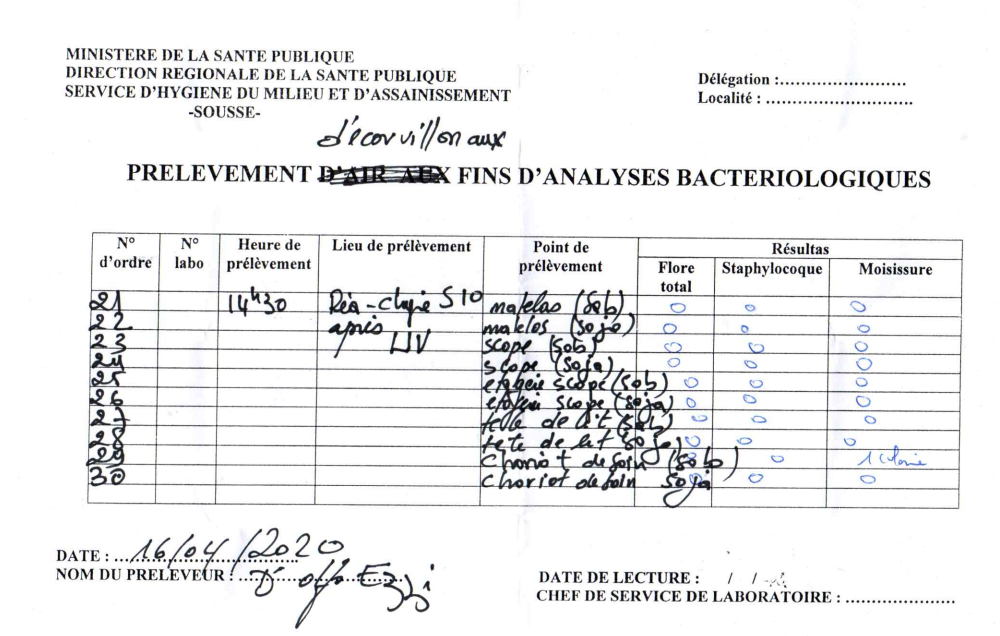 MINISTERE DE LA SANTE PUBLIQUE
DIRECTION REGIONALE DE LA SANTE PUBLIQUE
SERVICE D'HYGIENE DU MILIEU ET D'ASSAINISSEMENT
-SOUSSE-
Délégation :........................
Localité : ............................
d'écouvillon aux
PRELEVEMENT D'AIR AUX FINS D'ANALYSES BACTERIOLOGIQUES
N° d'ordre N° labo Heure de prélèvement Lieu de prélèvement Point de prélèvement Résultas
Flore total Staphylocoque Moisissure
21 14h30 Réa-chgie S10 matelas (Sab) 0 0 0
22 après matelas (soja) 0 0 0
23 UV scope (Sob) 0 0 0
24 scope (Soja) 0 0 0
25 scope (Sob) 0 0 0
26 scope (soja) 0 0 0
27 de lit (Sab) 0 0 0
28 tete de lit soja) 0 0 0
29 Choriot de soin (Sob) 0 0 1 colonie
30 Choriot de soin soja 0 0 0
DATE : 16/04/2020
NOM DU PRELEVEUR :
DATE DE LECTURE : / /
CHEF DE SERVICE DE LABORATOIRE : .....................